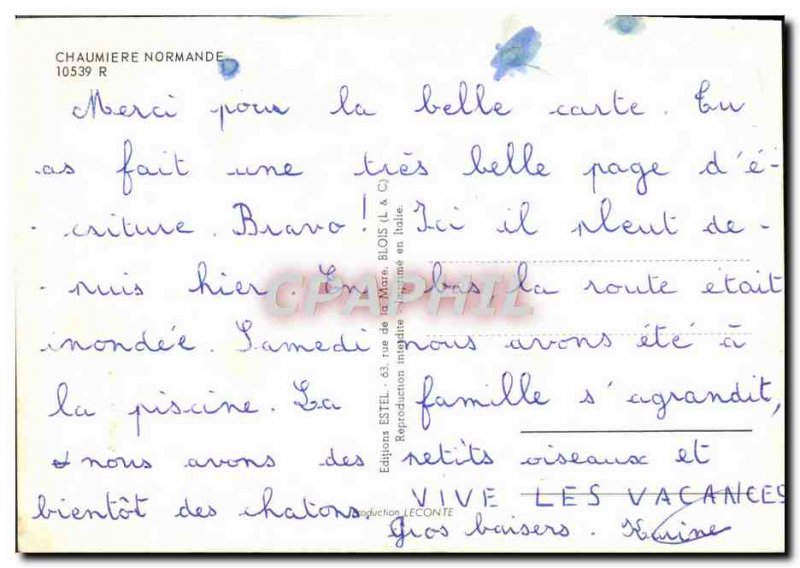 CHAUMIERE NORMANDE
10539 R
Merci pour la belle carte. Tu
as fait une très belle page d'é-
-criture. Bravo! Ici il pleut de-
-puis hier. En bas, la route était
inondée. Samedi nous avons été à
la piscine. La famille s'agrandit,
nous avons des petits oiseaux et
bientôt des chatons. VIVE LES VACANCES
Gros baisers. Karine
Editions ESTEL - 63, rue de la Mare, BLOIS (L & C)
Reproduction interdite - Imprimé en Italie.
Production LECONTE
CPAPHIL